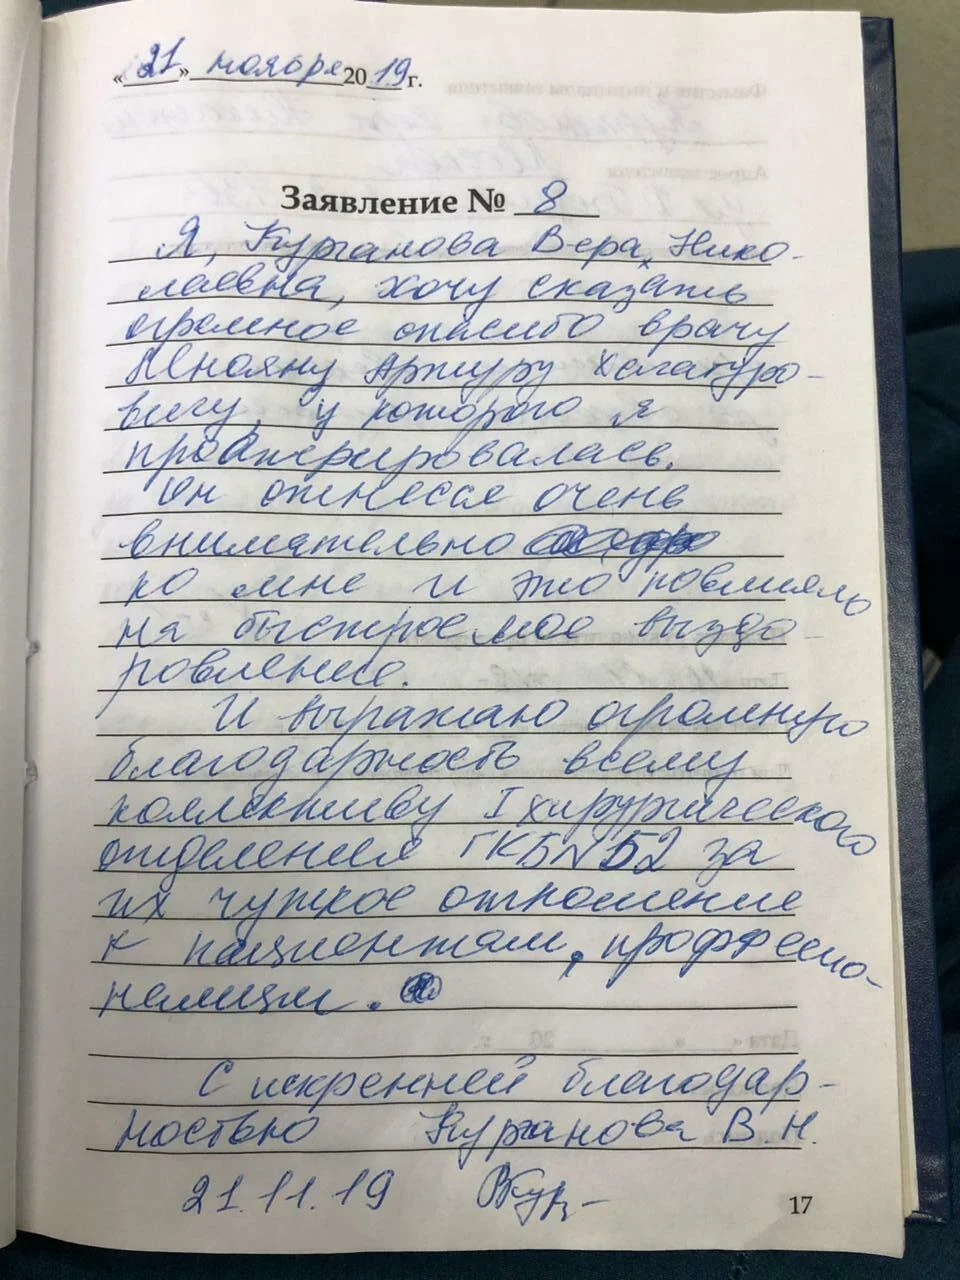 «21» ноября 2019 г.
Заявление № 8
Я, Курганова Вера Нико-
лаевна, хочу сказать
огромное спасибо врачу
Мнояну Артуру Хачатуро-
вичу, у которого я
прооперировалась.
Он отнесся очень
внимательно
ко мне и это повлияло
на быстрое мое выздо-
ровление.
И выражаю огромную
благодарность всему
коллективу I хирургического
отделения ГКБ№52 за
их чуткое отношение
к пациентам, проффесио-
нализм.
С искренней благодар-
ностью Курганова В.Н.
21.11.19 ВКур-
17